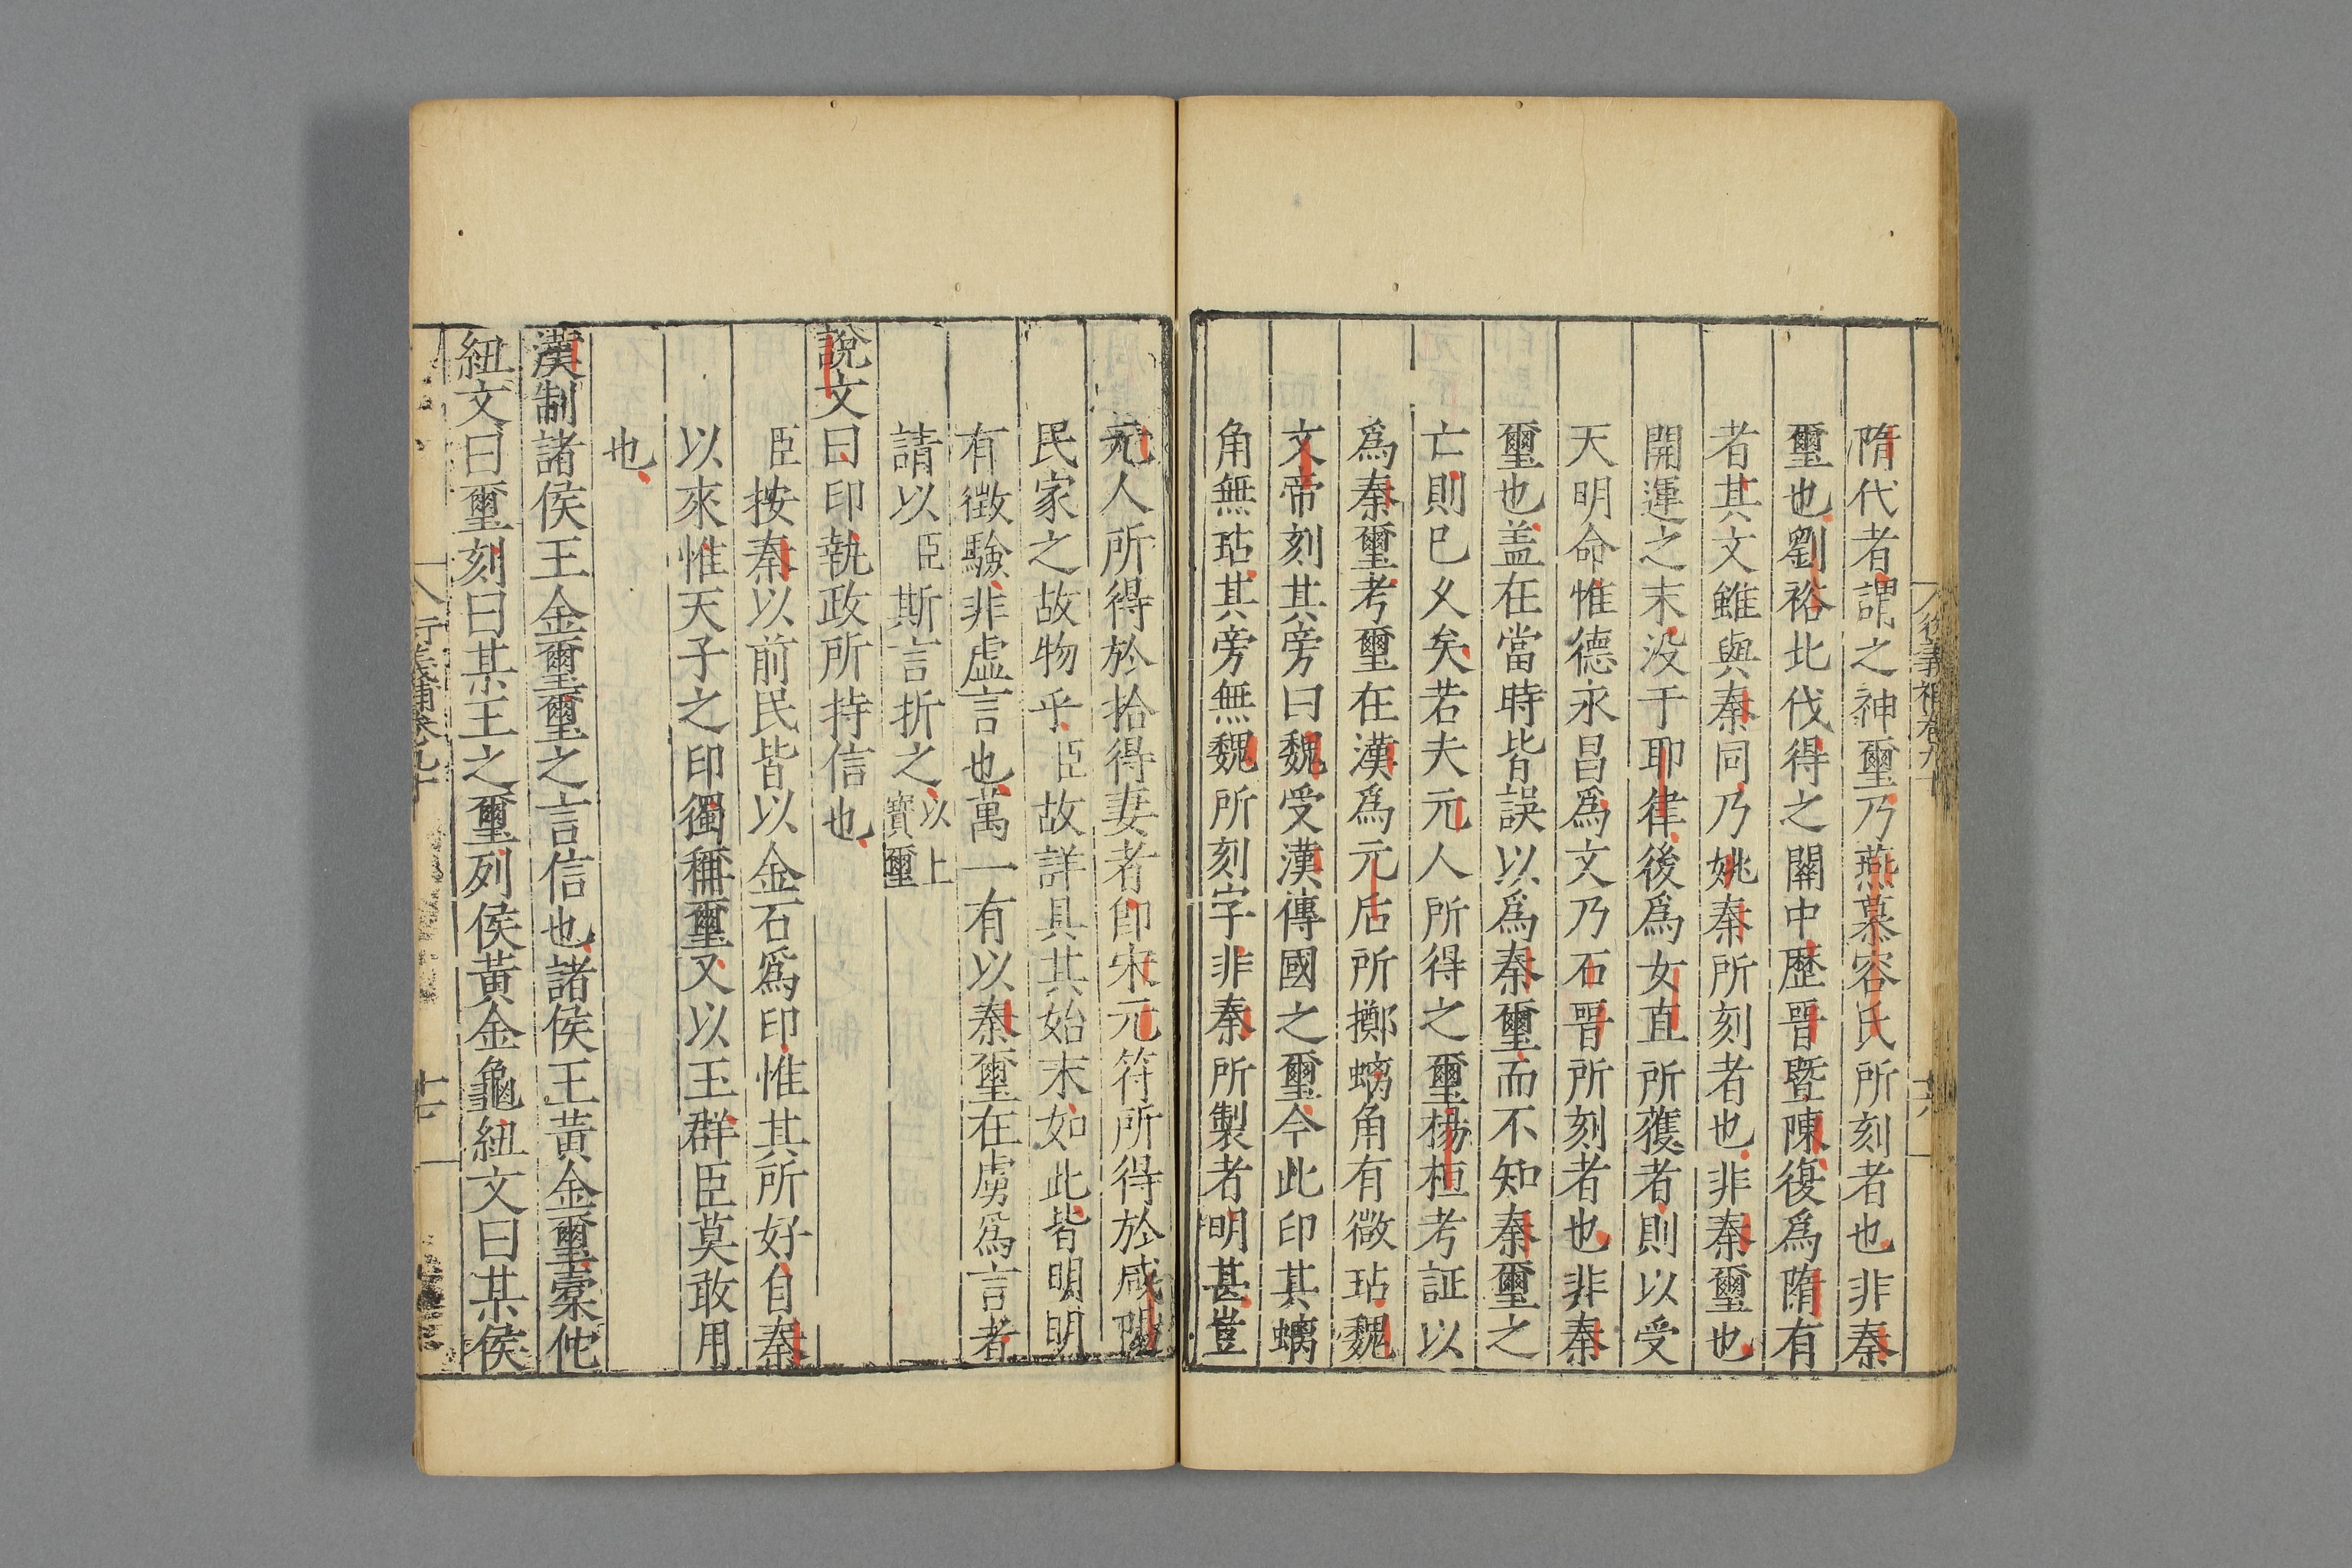 隋代者謂之神璽乃燕慕容氏所刻者也非秦
璽也劉裕北伐得之關中歷晉曁陳復爲隋有
者其文雖與秦同乃姚秦所刻者也非秦璽也
開運之末没于耶律後爲女直所獲者則以受
天明命惟德永昌爲文乃石晉所刻者也非秦
璽也盖在當時皆誤以爲秦璽而不知秦璽之
亡則已久矣若夫元人所得之璽楊桓考証以
爲秦璽考璽在漢爲元后所擲螭角有微玷魏
文帝刻其旁曰魏受漢傳國之璽今此印其螭
角無玷其旁無魏所刻字非秦所製者明甚豈
元人所得於拾得妻者卽宋元符所得於咸陽
民家之故物乎臣故詳具其始末如此皆明明
有徵驗非虛言也萬一有以秦璽在虜爲言者
請以臣斯言折之以上寶璽
說文曰印執政所持信也
臣按秦以前民皆以金石爲印惟其所好自秦
以來惟天子之印獨稱璽又以玉群臣莫敢用
也
漢制諸侯王金璽璽之言信也諸侯王黃金璽橐佗
紐文曰璽刻曰某王之璽列侯黃金龜紐文曰某侯
行義補卷九十
十七